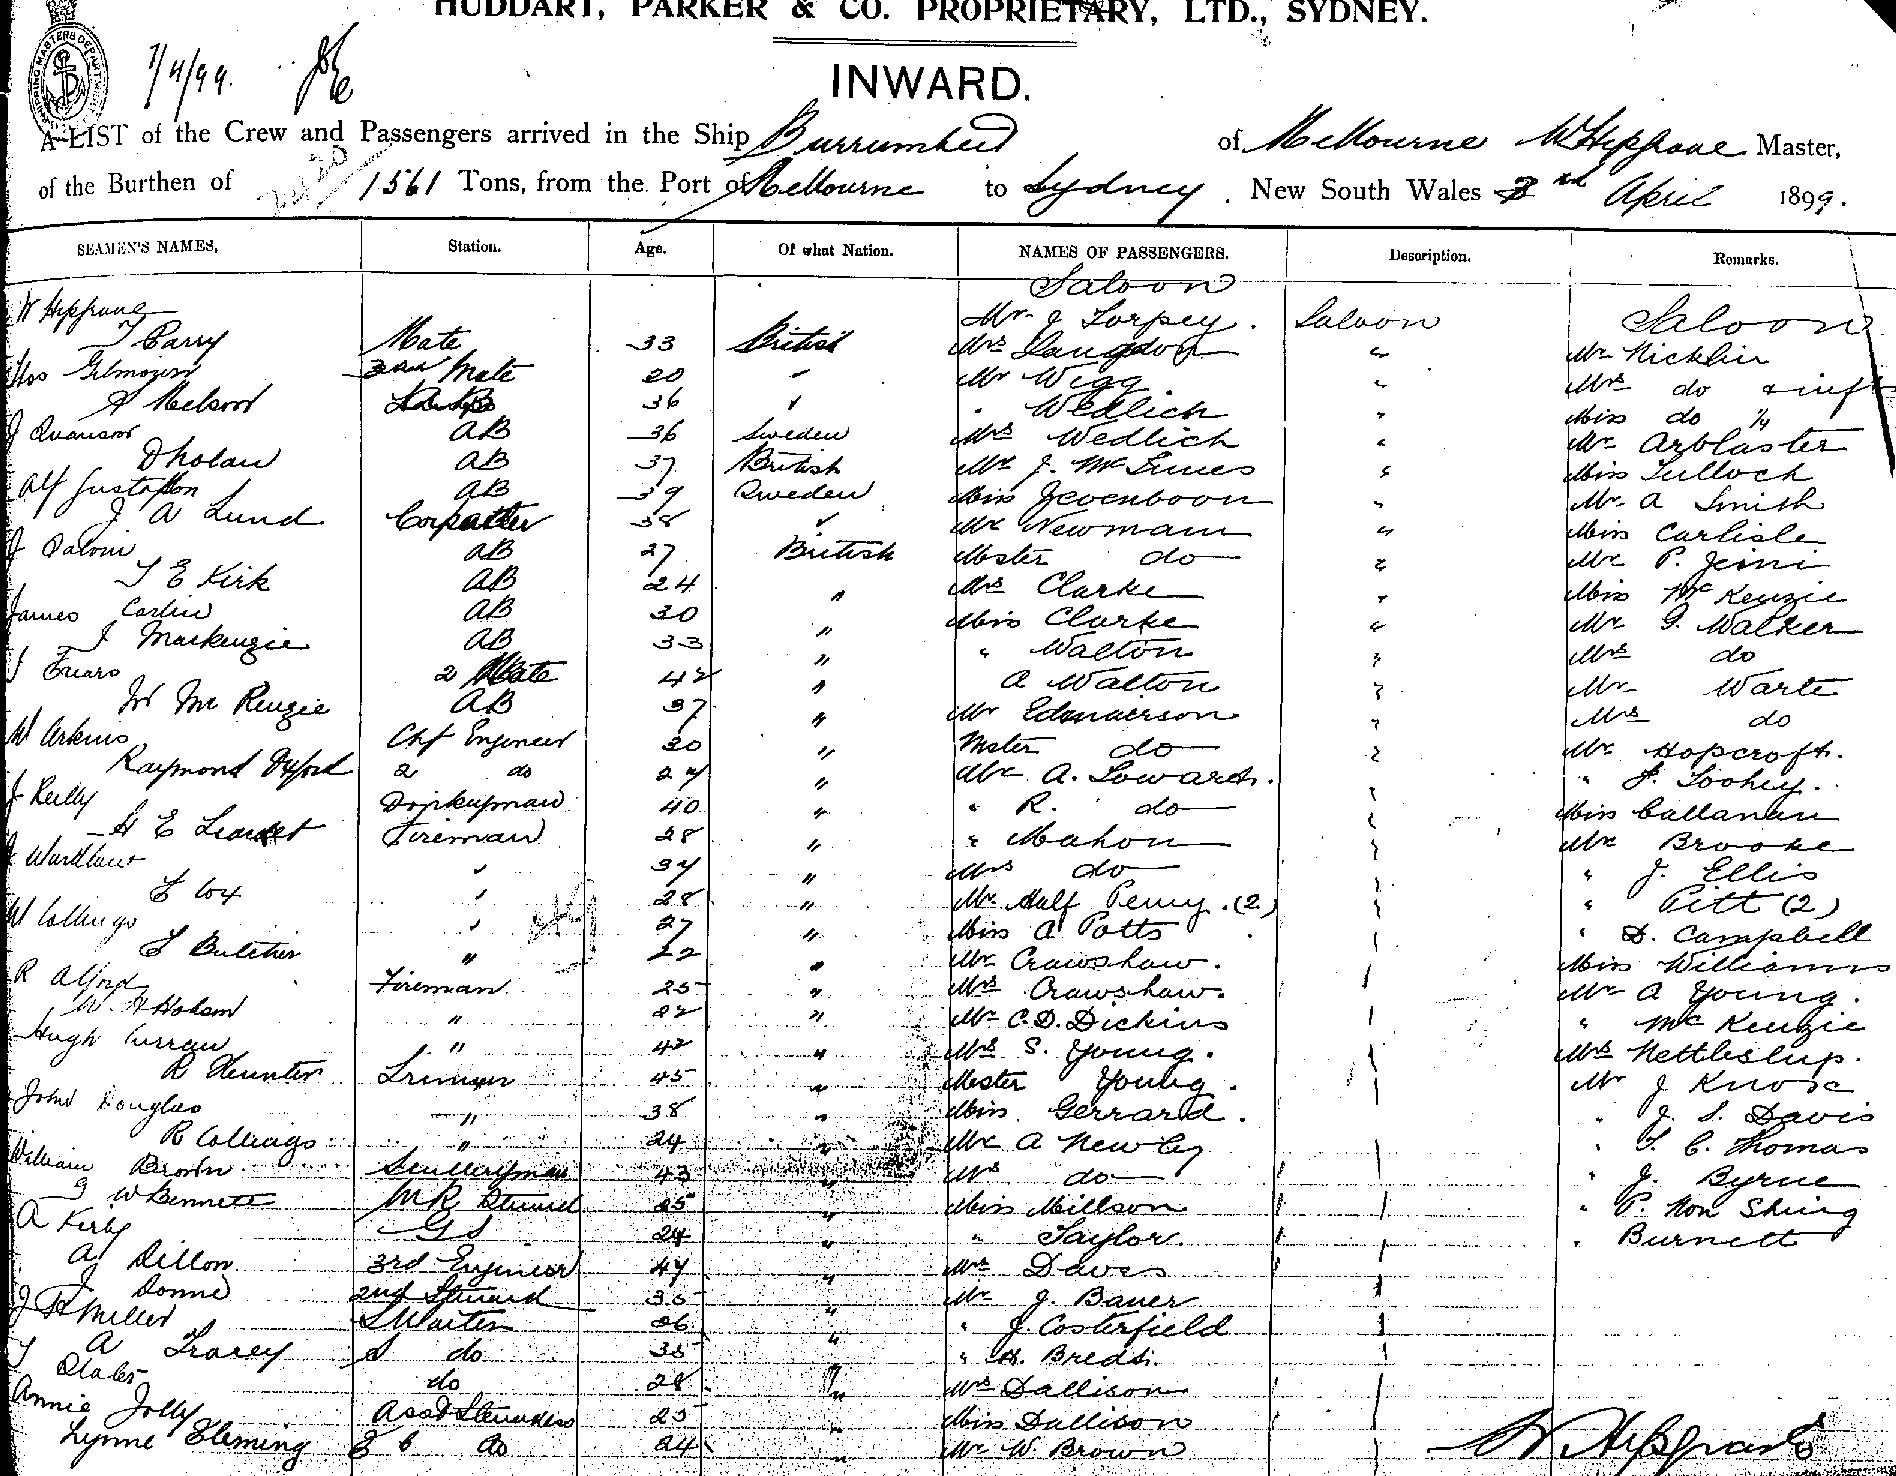 HUDDART, PARKER & CO. PROPRIETARY, LTD., SYDNEY.
INWARD.
A LIST of the Crew and Passengers arrived in the Ship Burrumbeet of Melbourne W Hipgrave Master,
of the Burthen of 1561 Tons, from the Port of Melbourne to Sydney, New South Wales 3rd April 1899.
SEAMEN'S NAMES, Station. Age. Of what Nation. NAMES OF PASSENGERS. Description. Remarks.
Saloon
W Hipgrave Mr J Torpey. Saloon Saloon
T Barry Mate 33 British Mrs Langdon " Mr Nicklin
Thos 3rd Mate 20 " Mr Wigg " Mrs do & inft
A Nelson 36 " " Wedlich " Miss do ½
J AB 36 Sweden Mrs Wedlich " Mr Arblaster
D Nolan AB 37 British Mr J. McInnes " Miss Tulloch
Alf Gustafson AB 39 Sweden Miss Jevenboon " Mr A Smith
J A Lund Carpenter 38 " Mr Newmam " Miss Carlisle
J AB 27 British Master do " Mr P.
T E Kirk AB 24 " Mrs Clarke " Miss McKenzie
James Carlin AB 30 " Miss Clarke " Mr G. Walker
J Mackenzie AB 33 " " Walton " Mrs do
J Friars 2 Mate 42 " A Walton " Mr Warte
W McKenzie AB 37 " Mr " Mrs do
W Arkins Chf Engineer 30 " Master do " Mr Hopcroft.
Raymond 2 do 27 " Mr A. Lowarch. " " Toohey.
J Reilly Donkeyman 40 " " R. do " Miss Callanan
H E Fireman 28 " " Mahon " Mr Brooke
Wardlaw " 34 " Mrs do " " J. Ellis
E Cox " 28 " Mr Half Penny. (2) " " Pitt (2)
W Collings " 27 " Miss A Potts " " D. Campbell
T Butcher " 22 " Mr Crawshaw. " Miss Williams
R Alford Fireman 25 " Mrs Crawshaw. " Mr A Young.
W H Hobson " 22 " Mr C. D. Dickins " " McKenzie
Hugh Curran " 42 " Mrs S. Young. " Mrs Nettleship.
R Hunter Trimmer 45 " Master Young. " Mr J Knose
John Douglas " 38 " Miss Gerrard. " J. S. Davis
R Collings " 24 " Mr A Newby " " T. C. Thomas
William Brown Scullaryman 43 " Mrs do " " J. Byrne
W Bennett M R Steward 25 " Miss Millson " " P. Hon Shing
A Kirby G S 24 " " Taylor. " " Burnett
A Dillon 3rd Engineer 44 " Mrs Daves "
J Donne 2nd Steward 35 " Mr J. Bauer "
J H Miller S Waiter 26 " " J. Costerfield "
A Tracey S do 35 " " H. Bredt. "
do 28 " Mrs Dallison "
Annie Jolly Asst Stewardess 25 " Miss Dallison "
Lynne Fleming do 24 " Mr W Brown "
W Hipgrave